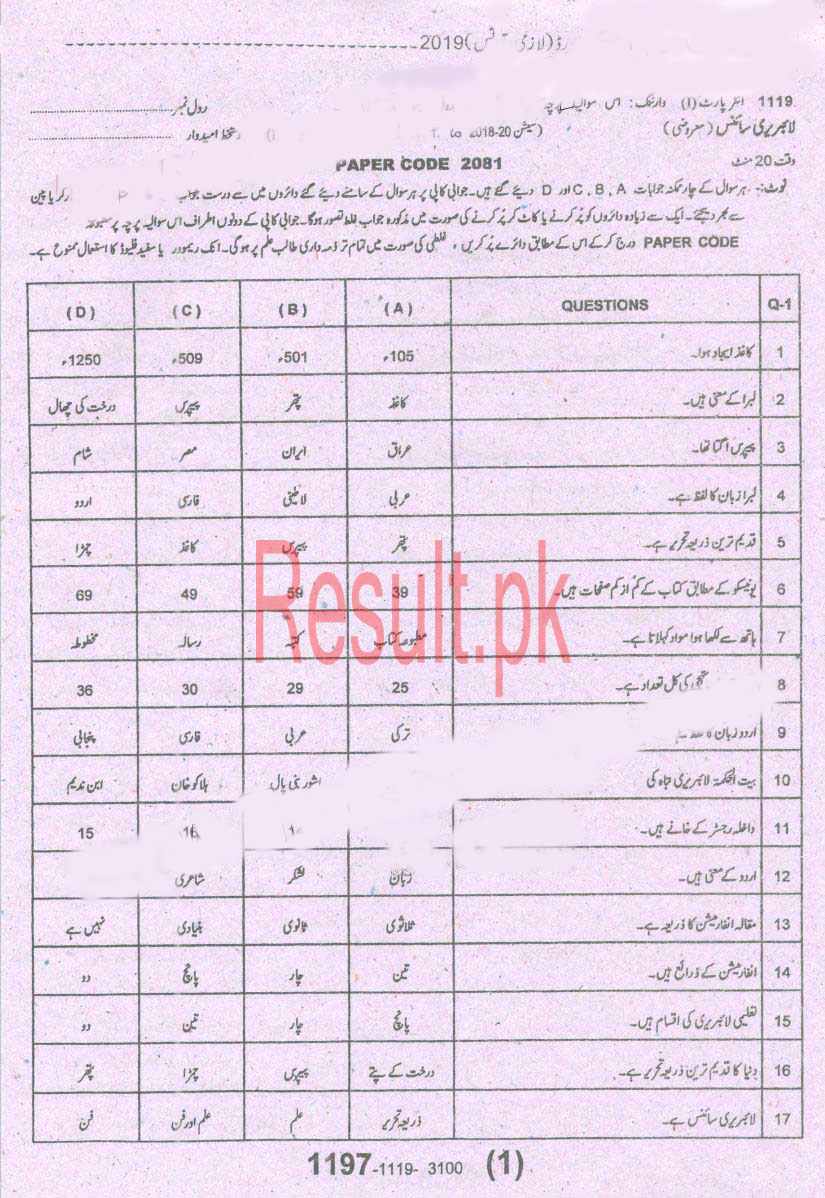 رڈ (لازمی - نس) 2019
1119 انٹر پارٹ (I) وارننگ: اس سوالیہ پرچہ رول نمبر
لائبریری سائنس (معروضی) (سیشن 2018-20 to دستخط امیدوار
وقت 20 منٹ PAPER CODE 2081
نوٹ:- ہر سوال کے چار ممکنہ جوابات A ، B ، C اور D دیئے گئے ہیں۔ جوابی کاپی پر ہر سوال کے سامنے دیئے گئے دائروں میں سے درست جواب رکر یا پین
سے بھر دیجئے۔ ایک سے زیادہ دائروں کو پُر کرنے یا کاٹ کر پُر کرنے کی صورت میں مذکورہ جواب غلط تصور ہوگا۔ جوابی کاپی کے دونوں اطراف اس سوالیہ پرچہ پر مطبوعہ
PAPER CODE درج کرکے اس کے مطابق دائرے پُر کریں ، غلطی کی صورت میں تمام تر ذمہ داری طالب علم پر ہوگی۔ انک ریموور یا سفید فلیوڈ کا استعمال ممنوع ہے۔
Q-1 QUESTIONS (A) (B) (C) (D)
1 کاغذ ایجاد ہوا۔ 105ء 501ء 509ء 1250ء
2 لبرا کے معنی ہیں۔ کاغذ پتھر پیپرس درخت کی چھال
3 پیپرس اگتا تھا۔ عراق ایران مصر شام
4 لبرا زبان کا لفظ ہے۔ عربی لاطینی فارسی اردو
5 قدیم ترین ذریعہ تحریر ہے۔ پتھر پیپرس کاغذ چمڑا
6 یونیسکو کے مطابق کتاب کے کم از کم صفحات ہیں۔ 39 59 49 69
7 ہاتھ سے لکھا ہوا مواد کہلاتا ہے۔ مطبوعہ کتاب کتبہ رسالہ مخطوطہ
8 کی کل تعداد ہے۔ 25 29 30 36
9 اردو زبان کا لفظ ترکی عربی فارسی پنجابی
10 بیت الحکمۃ لائبریری تباہ کی اشور بنی پال ہلاکو خان ابن ندیم
11 داخلہ رجسٹر کے خانے ہیں۔ 1 16 15
12 اردو کے معنی ہیں۔ زبان لشکر شاعری
13 مقالہ انفارمیشن کا ذریعہ ہے۔ ثلاثوی ثانوی بنیادی نہیں ہے
14 انفارمیشن کے ذرائع ہیں۔ تین چار پانچ دو
15 تعلیمی لائبریری کی اقسام ہیں۔ پانچ چار تین دو
16 دنیا کا قدیم ترین ذریعہ تحریر ہے۔ درخت کے پتے پیپرس چمڑا پتھر
17 لائبریری سائنس ہے۔ ذریعہ تحریر علم علم اور فن فن
Result.pk
1197-1119- 3100 (1)